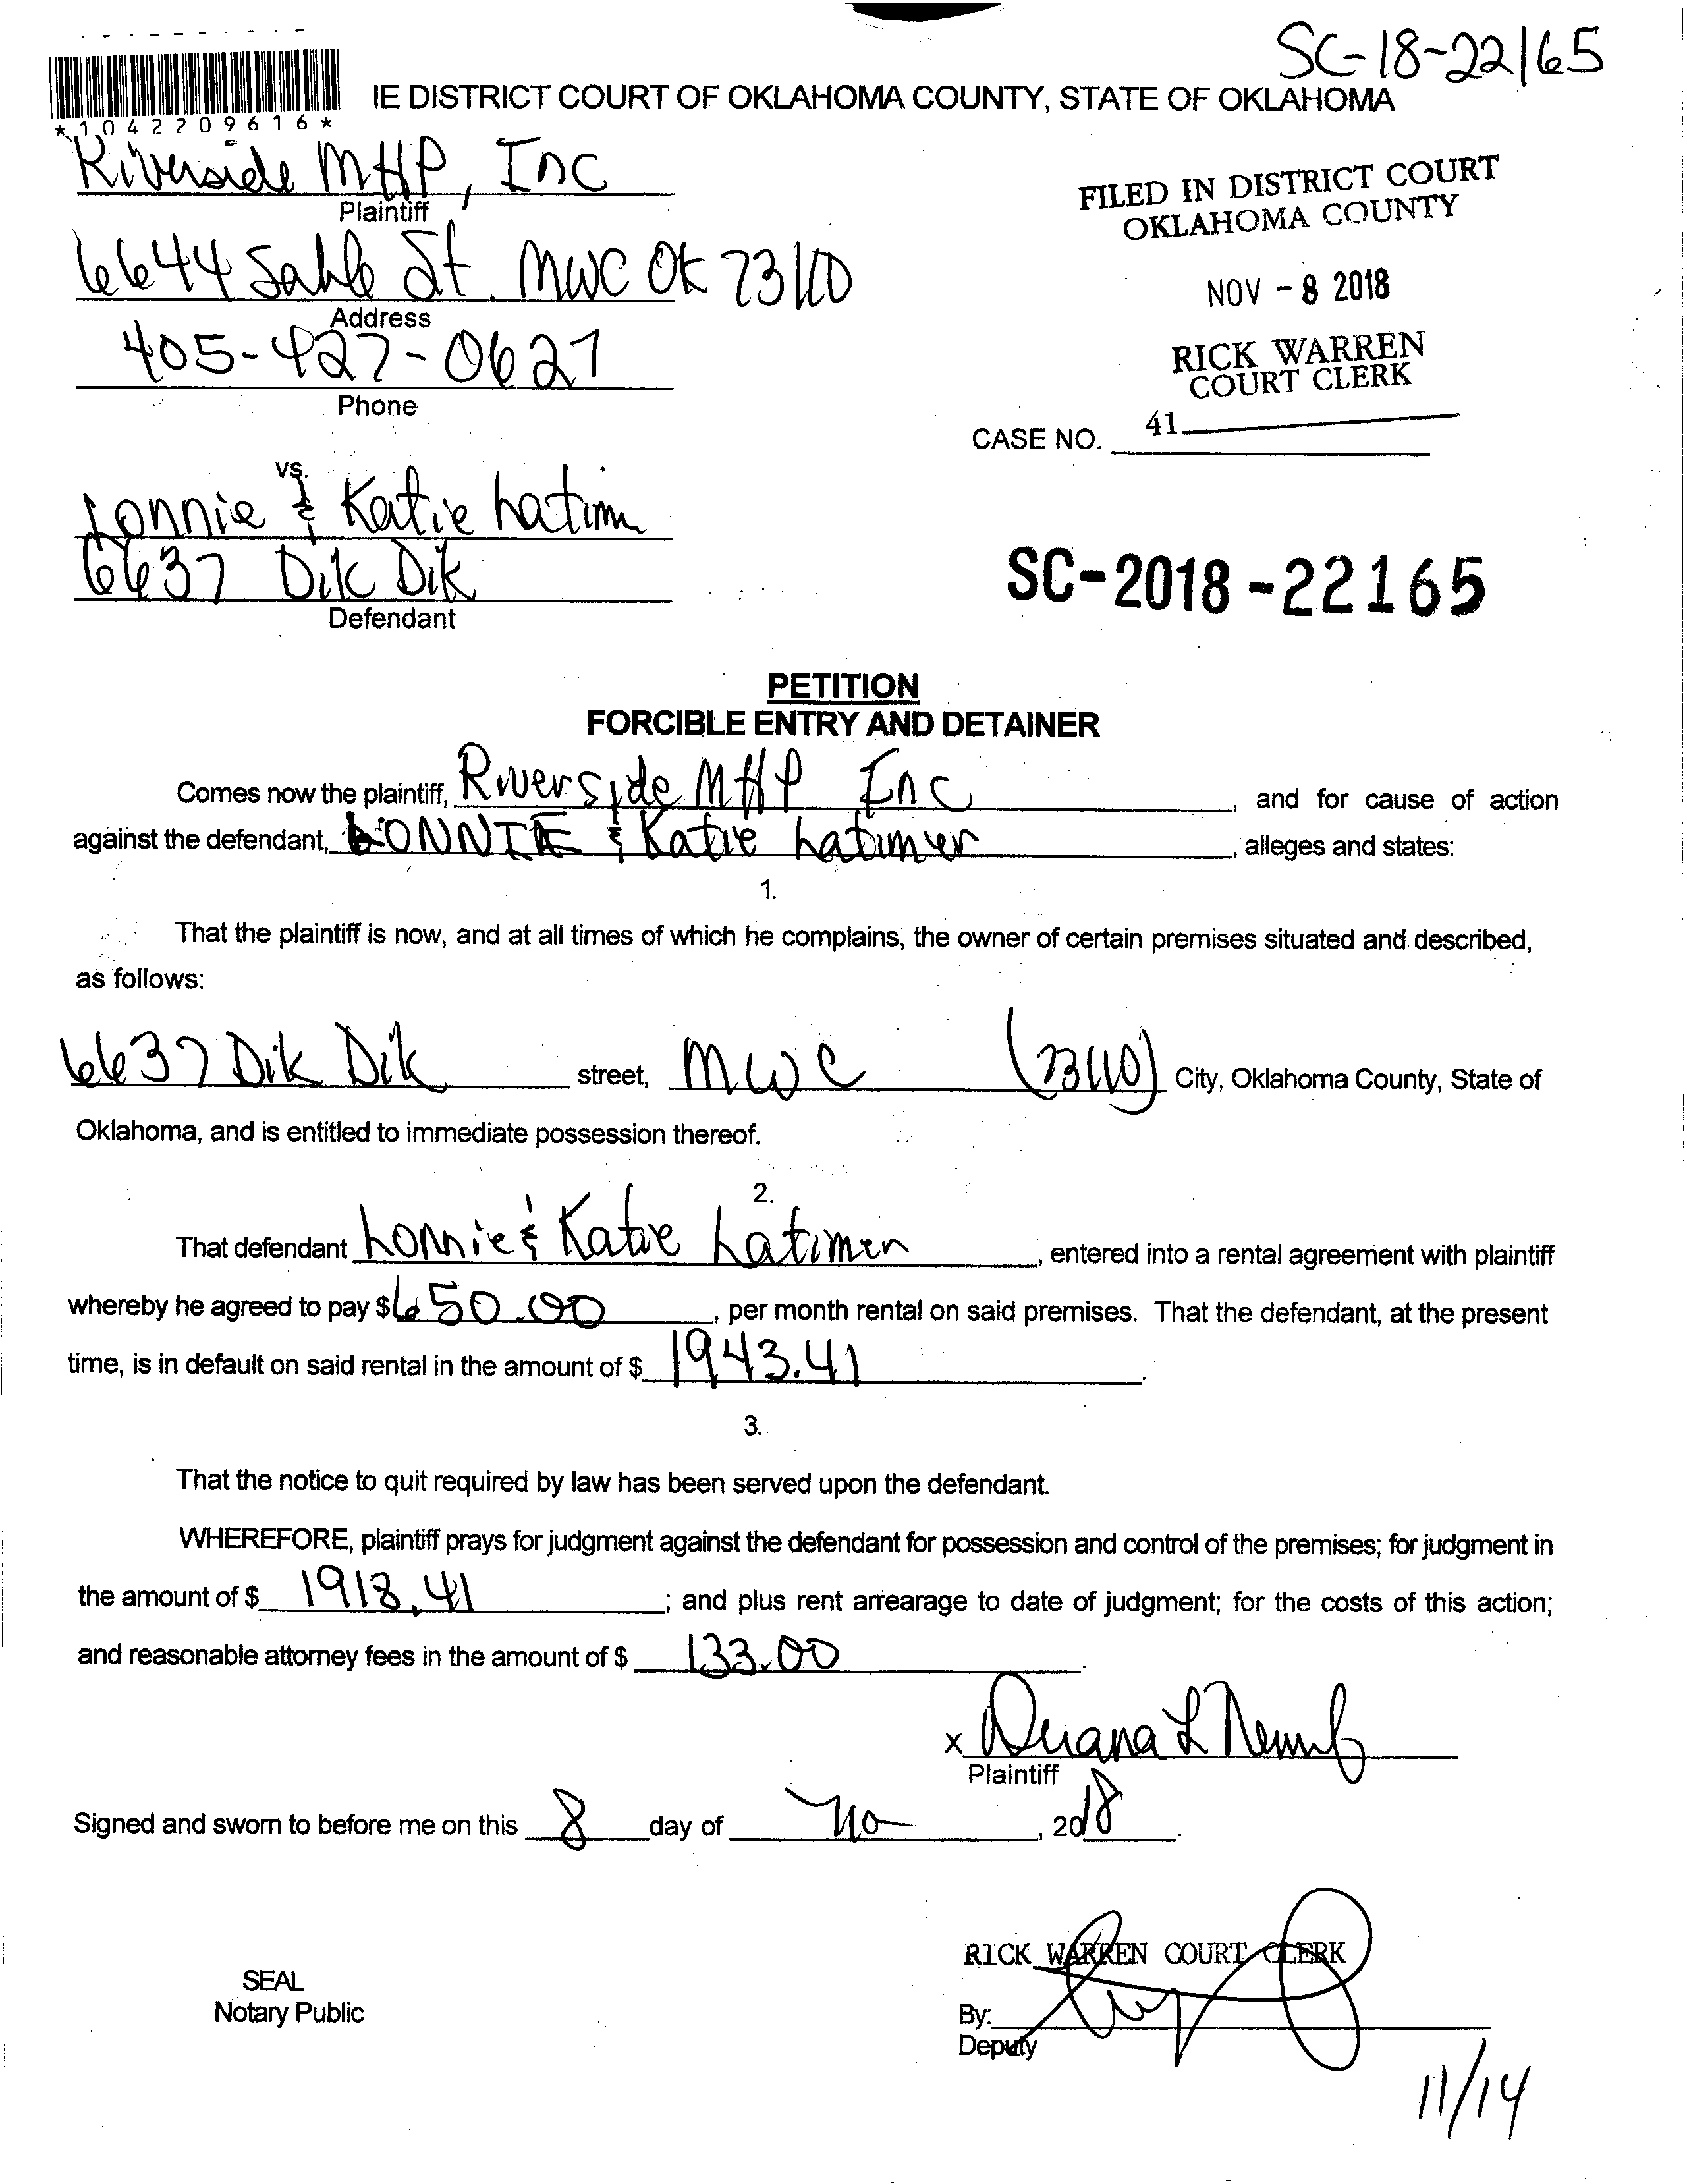 SC-18-22165
IE DISTRICT COURT OF OKLAHOMA COUNTY, STATE OF OKLAHOMA
*1042209616*
Riverside MHP, Inc
Plaintiff
FILED IN DISTRICT COURT
OKLAHOMA COUNTY
6644 Sable St. MWC OK 73110
Address
NOV - 8 2018
405-427-0627
Phone
RICK WARREN
COURT CLERK
CASE NO. 41
vs.
Lonnie & Katie Latim
6637 Dik Dik
Defendant
SC-2018-22165
PETITION
FORCIBLE ENTRY AND DETAINER
Comes now the plaintiff, Riverside MHP Inc, and for cause of action
against the defendant, LONNIE & Katie Latimer, alleges and states:
1.
That the plaintiff is now, and at all times of which he complains, the owner of certain premises situated and described,
as follows:
6637 Dik Dik street, MWC (73110) City, Oklahoma County, State of
Oklahoma, and is entitled to immediate possession thereof.
2.
That defendant Lonnie & Katie Latimer, entered into a rental agreement with plaintiff
whereby he agreed to pay $650.00, per month rental on said premises. That the defendant, at the present
time, is in default on said rental in the amount of $ 1943.41.
3.
That the notice to quit required by law has been served upon the defendant.
WHEREFORE, plaintiff prays for judgment against the defendant for possession and control of the premises; for judgment in
the amount of $ 1918.41; and plus rent arrearage to date of judgment; for the costs of this action;
and reasonable attorney fees in the amount of $ 133.00.
X
Plaintiff
Signed and sworn to before me on this 8 day of No, 2018.
RICK WARREN COURT CLERK
SEAL
Notary Public
By:
Deputy
11/14